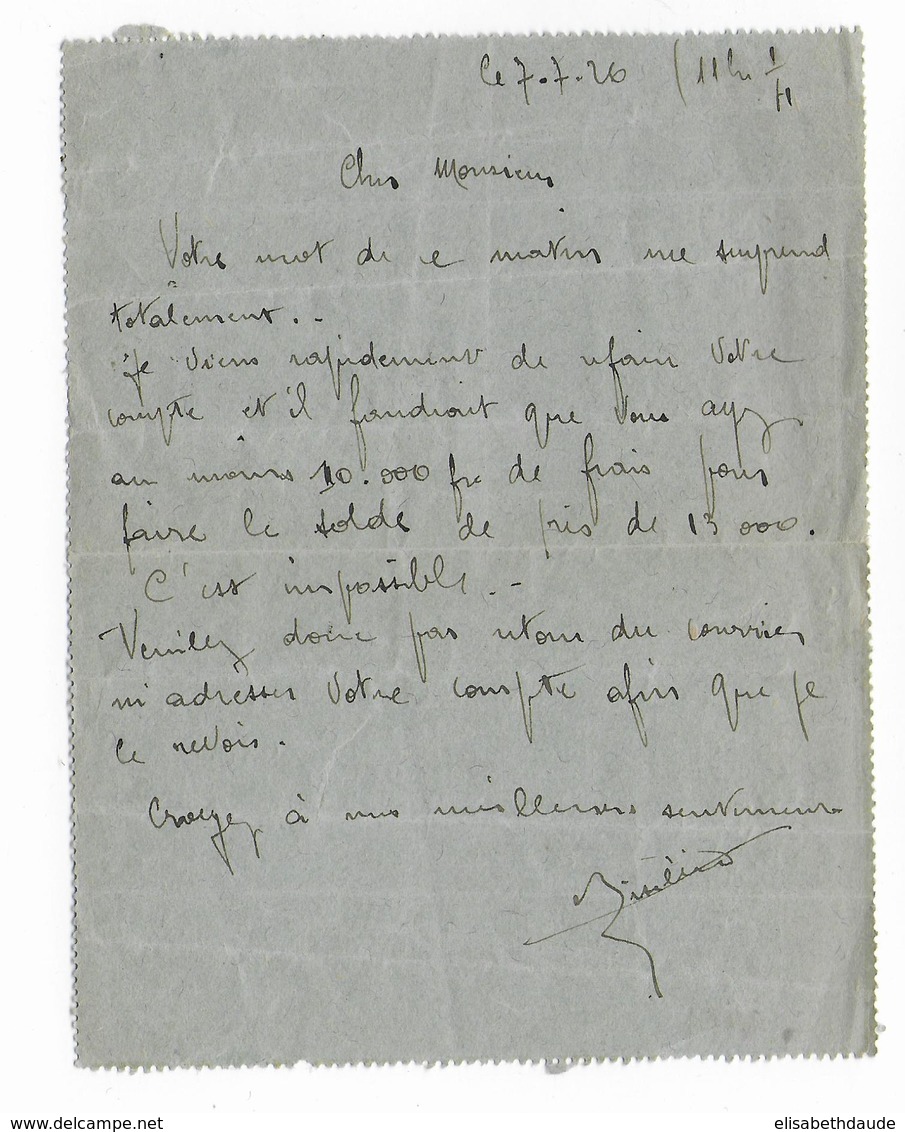 le 7.7.26 (11h 1/4
Cher Monsieur
Votre mot de ce matin me surprend
totalement..-
Je viens rapidement de refaire votre
compte et il faudrait que vous ayez
au moins 10.000 fr de frais pour
faire le solde de près de 13 000.
C'est impossible.-
Veuillez donc par retour du courrier
m'adresser votre compte afin que je
le revois.
Croyez à mes meilleurs sentiments
www.delcampe.net
elisabethdaude